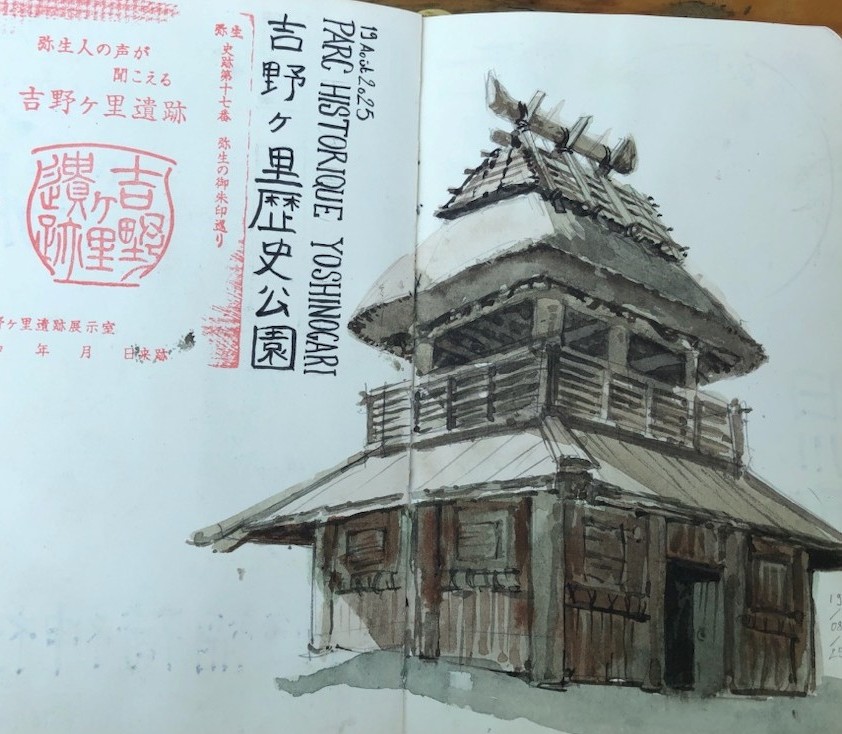 弥生人の声が
聞こえる
吉野ヶ里遺跡
吉野ヶ里
遺跡
野ヶ里遺跡展示室
年 月 日来跡
弥生 史跡第十七番 弥生の御朱印巡り
吉野ヶ里歴史公園
PARC HISTORIQUE YOSHINOGARI
19 Août 2025
19
/
08
/
25